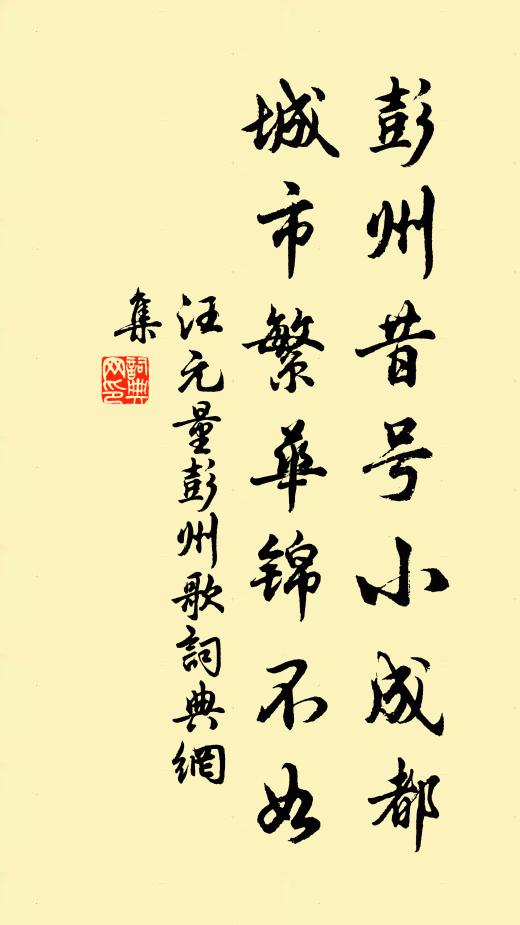 彭州昔号小成都
城市繁華錦不如
汪元量彭州歌詞典網
集
詞典
网印